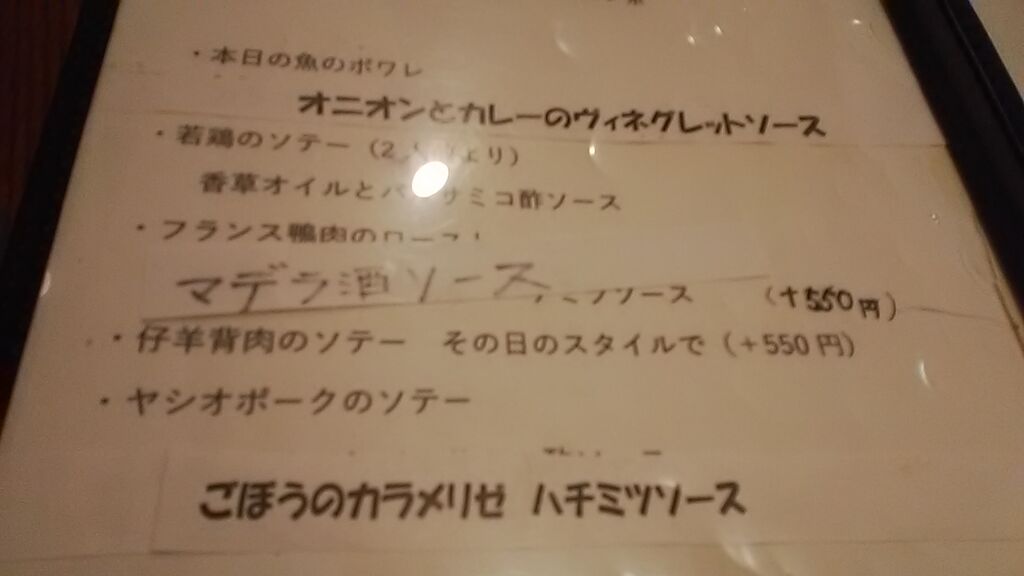 ・本日の魚のポワレ
オニオンとカレーのヴィネグレットソース
・若鶏のソテー（2 より）
香草オイルとバルサミコ酢ソース
・フランス鴨肉のロースト
マデラ酒ソース ソース （+550円）
・仔羊背肉のソテー その日のスタイルで（+550円）
・ヤシオポークのソテー
ごぼうのカラメリゼ ハチミツソース